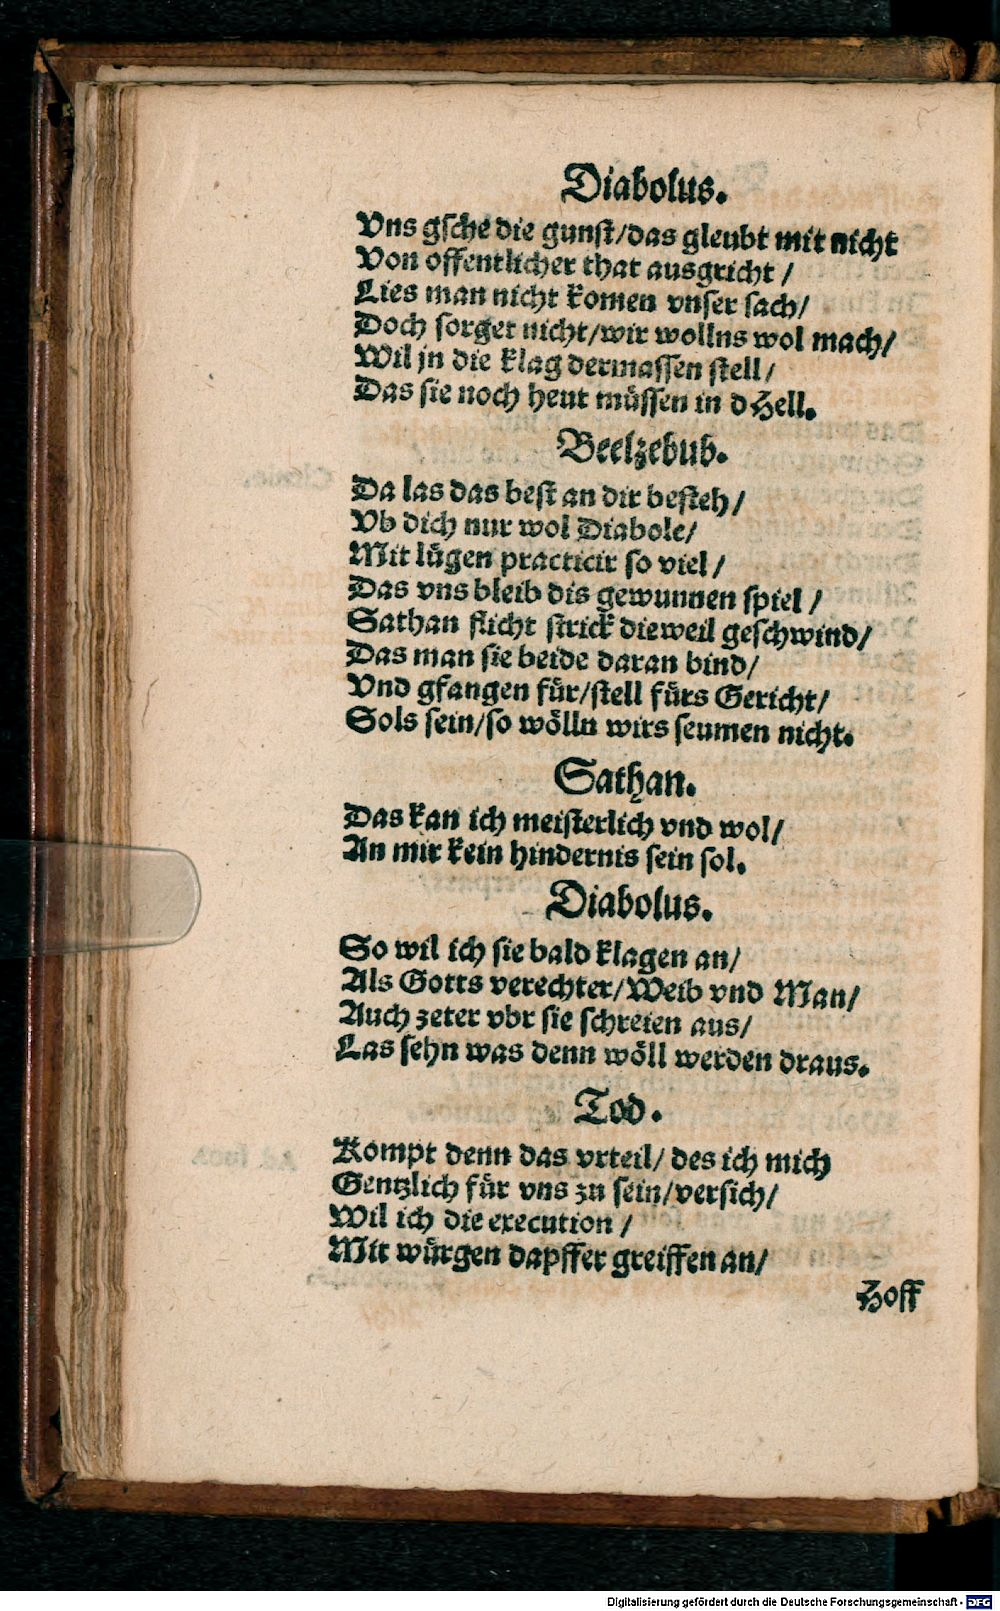 Diabolus.
Vns gsche die gunst/das gleubt mit nicht
Von offentlicher that ausgricht /
Lies man nicht komen vnser sach/
Doch sorget nicht/wir wollns wol mach/
Wil jn die klag dermassen stell/
Das sie noch heut müssen in dHell.
Beelzebub.
Da las das best an dir besteh/
Vb dich nur wol Diabole/
Mit lügen practicir so viel /
Das vns bleib dis gewunnen spiel /
Sathan flicht strick dieweil geschwind/
Das man sie beide daran bind/
Vnd gfangen für/stell fürs Gericht/
Sols sein/so wölln wirs seumen nicht.
Sathan.
Das kan ich meisterlich vnd wol/
An mir kein hindernis sein sol.
Diabolus.
So wil ich sie bald klagen an/
Als Gotts verechter/Weib vnd Man/
Auch zeter vbr sie schreien aus/
Las sehn was denn wöll werden draus.
Tod.
Kompt denn das vrteil/ des ich mich
Gentzlich für vns zu sein/versich/
Wil ich die execution /
Mit würgen dapffer greiffen an/
Hoff
Digitalisierung gefördert durch die Deutsche Forschungsgemeinschaft - DFG